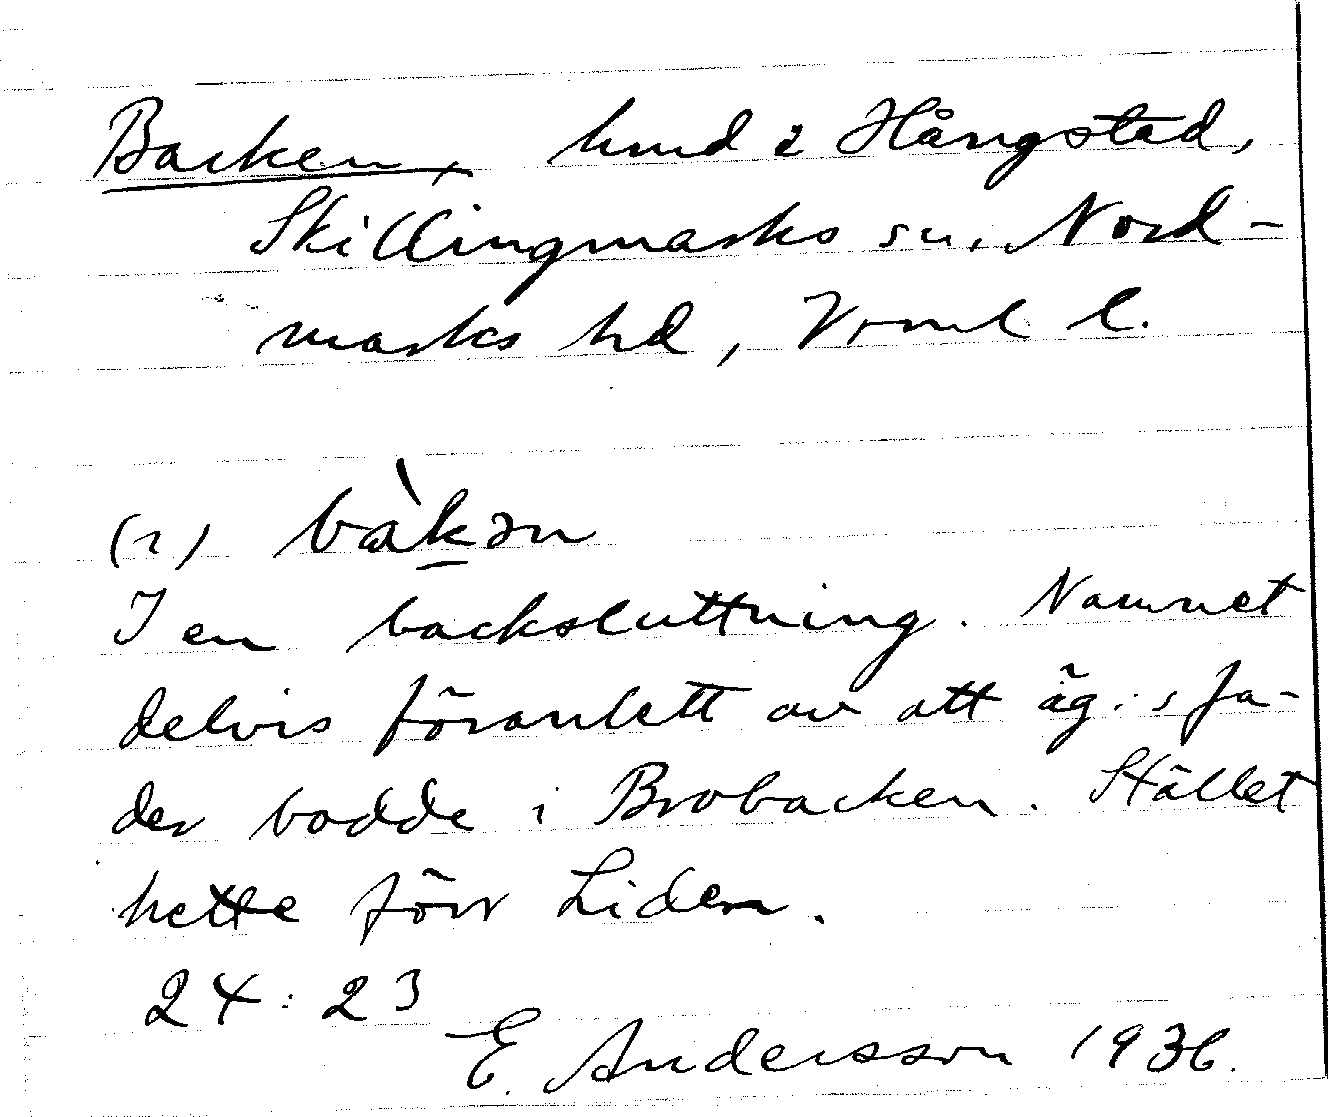 Backen, hmd i Hångstad,
Skillingmarks sn, Nord-
marks hd, Vrml l.
(i) bàkən
I en backsluttning. Namnet
delvis föranlett av att äg:s fa-
der bodde i Brobacken. Stället
hette förr Liden.
24:23
E. Andersson 1936.